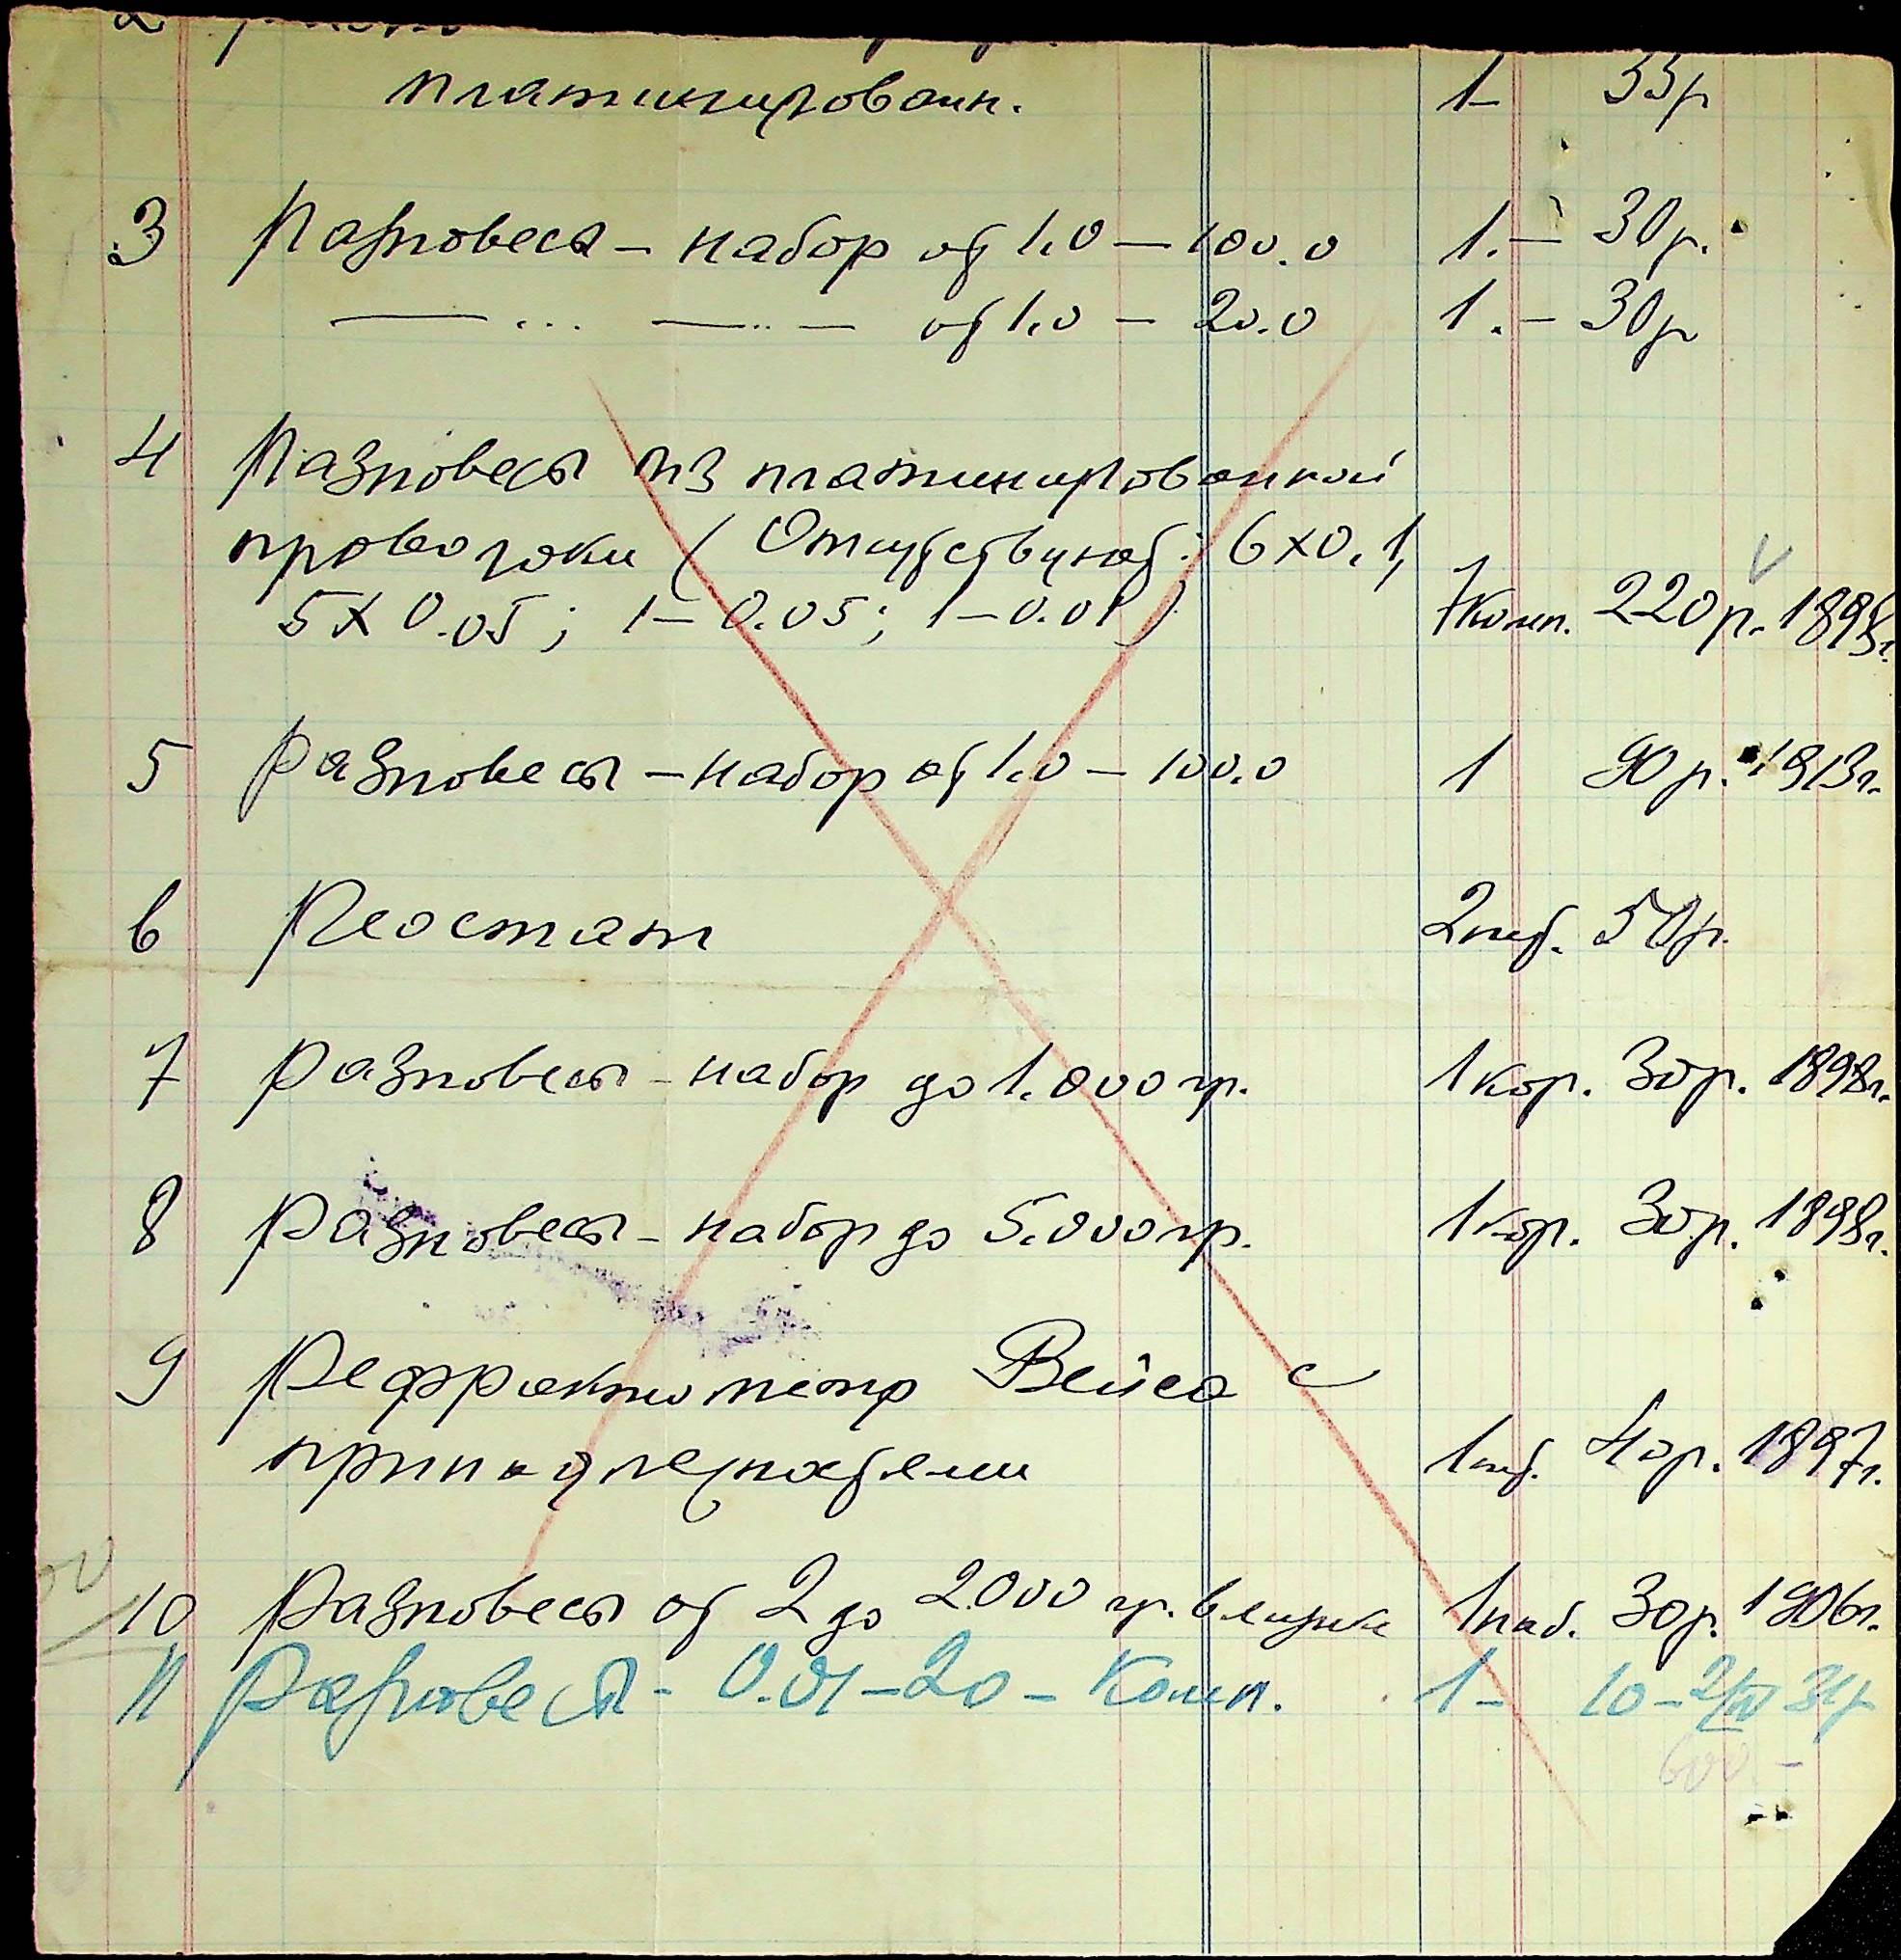 платинирован. 1- 33р
3 Разновеса - набор от 1.0 — 100.0 1. - 30р.
—— ... —— .. — от 1.0 — 20.0 1. - 30р
4 Разновесы из платинированной
проволоки (Отсутствуют: 6x0.1,
5x0.05; 1-0.05; 1-0.01) 1комп. 220р. 1898г.
5 Разновесы - набор от 1.0 — 100.0 1 90р. 1913г.
6 Реостат 2шт. 50р.
7 Разновесы - набор до 1.000гр. 1кор. 30р. 1898г.
8 Разновесы - набор до 5.000гр. 1кор. 30р. 1898г.
9 Рефрактометр Вейса с
принадлежностями 1шт. 40р. 1897г.
10 Разновесы от 2 до 2000 гр. в ящике 1наб. 30р. 1906г.
11 Разновесы - 0.01-20 - Комп. 1- 10-2/IV 31г
600 -